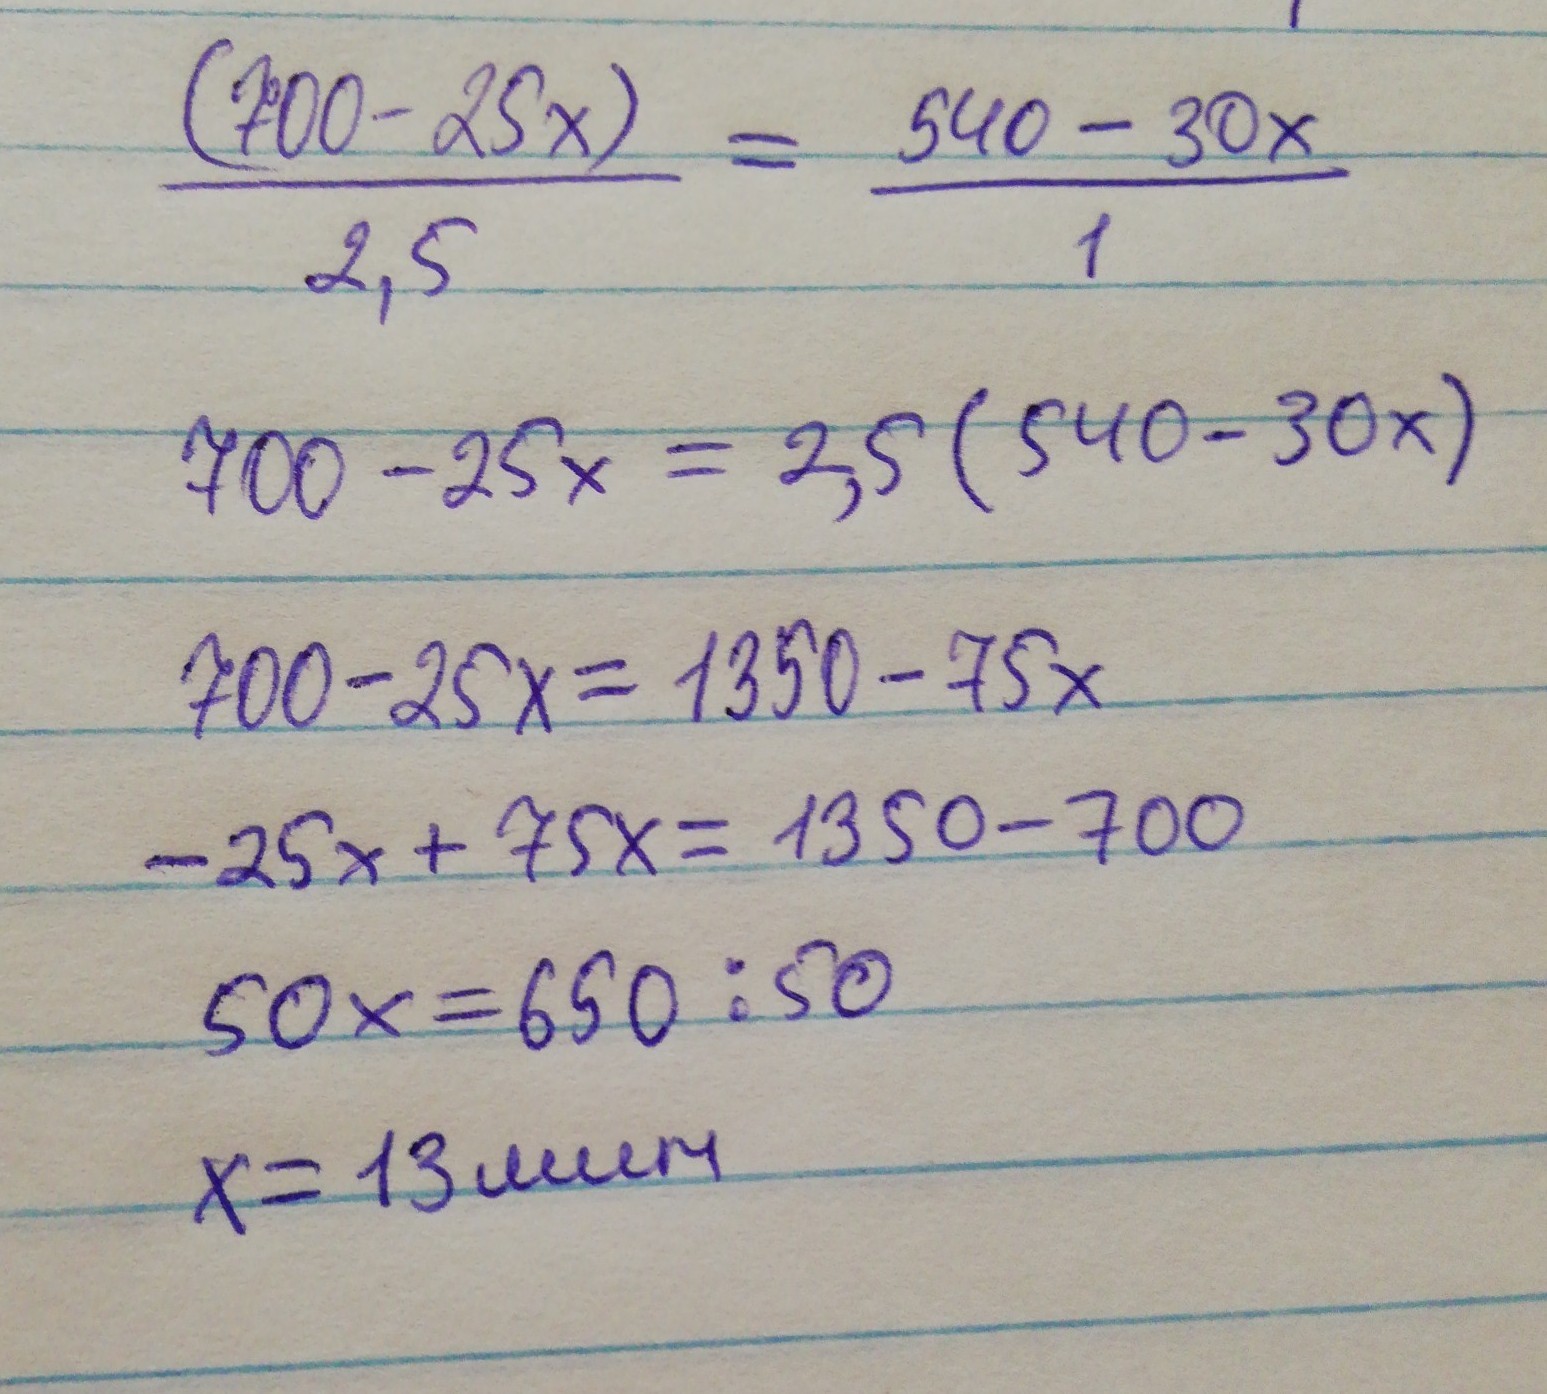 (700-25x)/2,5 = 540-30x/1
700-25x = 2,5(540-30x)
700-25x = 1350-75x
-25x+75x = 1350-700
50x=650:50
x=13мин